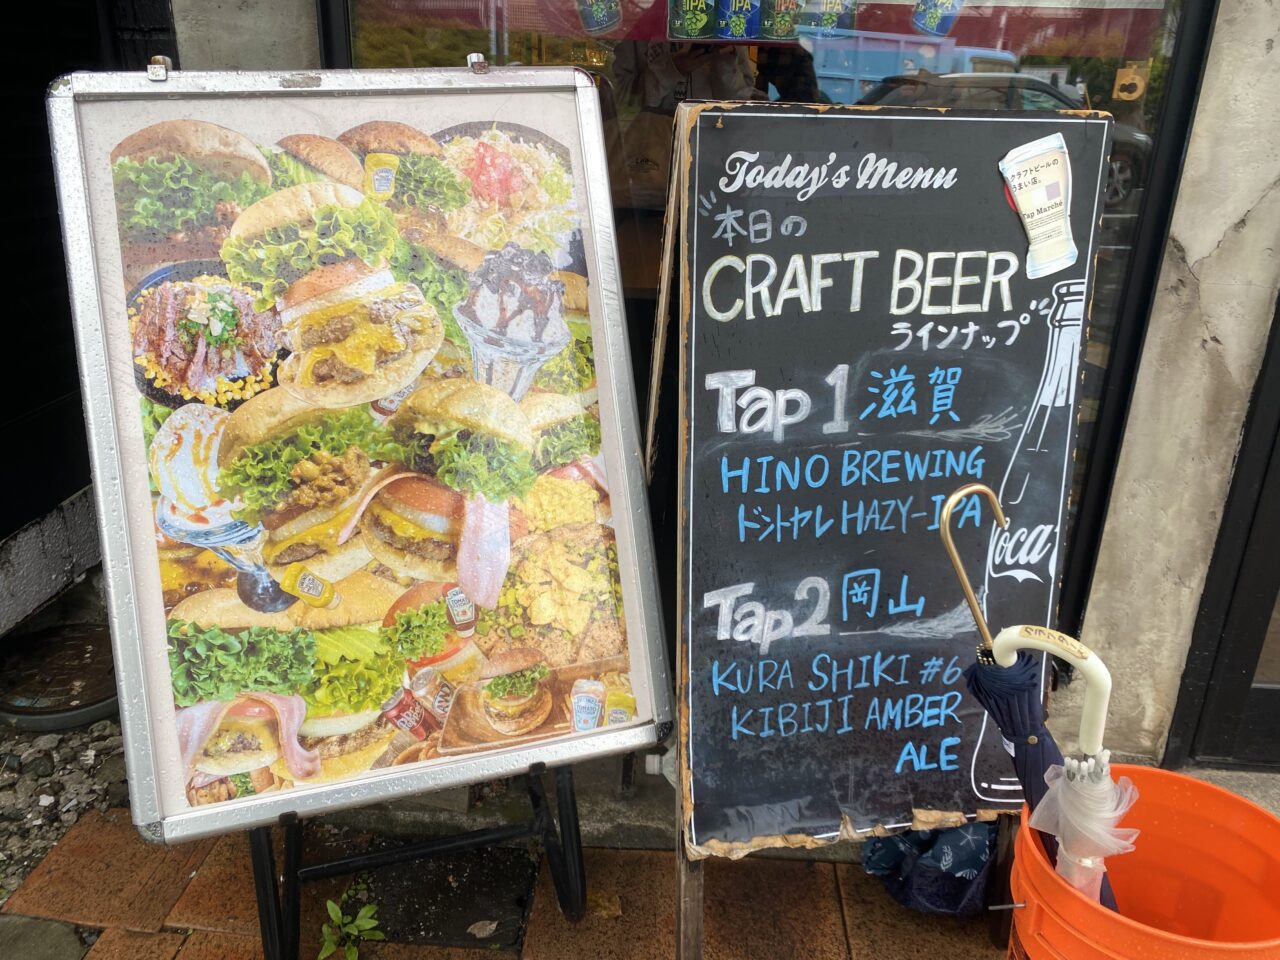 IPA
IPA
IPA
Today's Menu
本日の
CRAFT BEER
ラインナップ
クラフトビールの
うまい店。
Tap Marché
Tap 1 滋賀
HINO BREWING
ドントヤレ HAZY-IPA
Tap2 岡山
KURASHIKI #6
KIBIJI AMBER
ALE
Coca